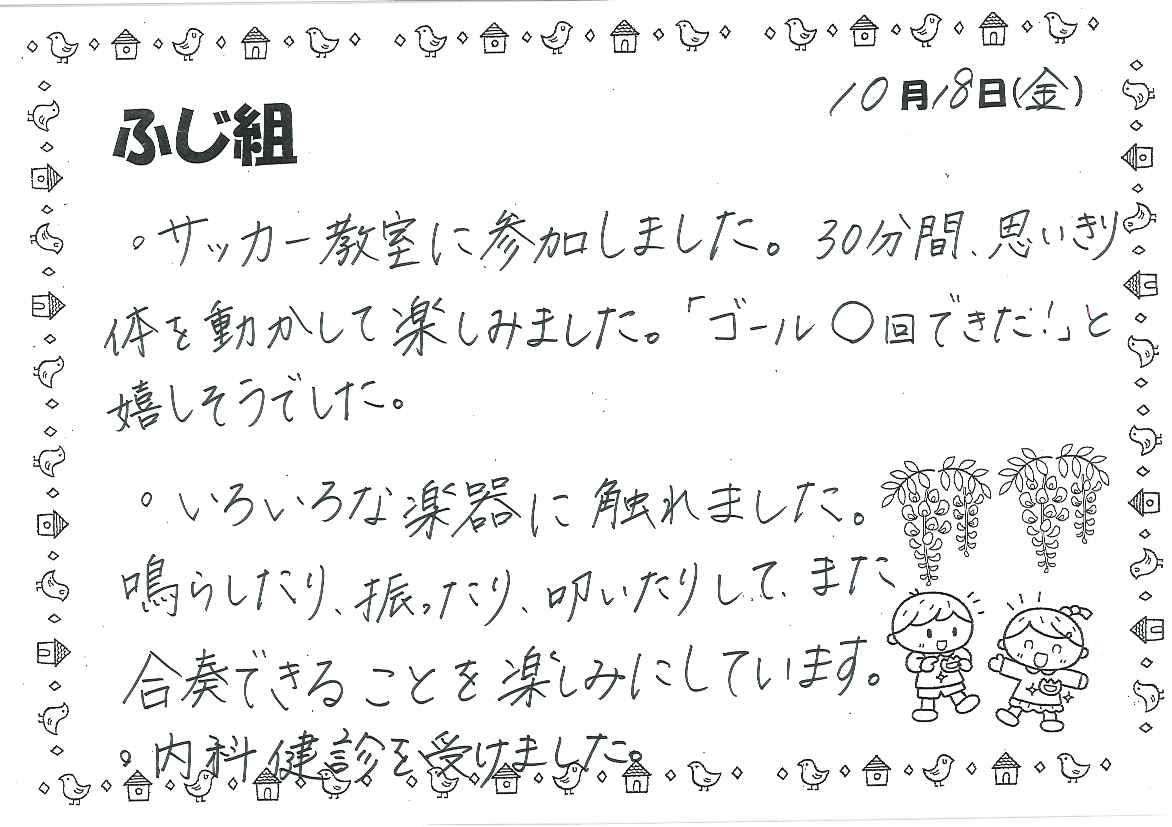 10月18日(金)
ふじ組
。サッカー教室に参加しました。30分間、思いきり
体を動かして楽しみました。「ゴール〇回できた!」と
嬉しそうでした。
。いろいろな楽器に触れました。
鳴らしたり、振ったり、叩いたりして、また
合奏できることを楽しみにしています。
。内科健診を受けました。